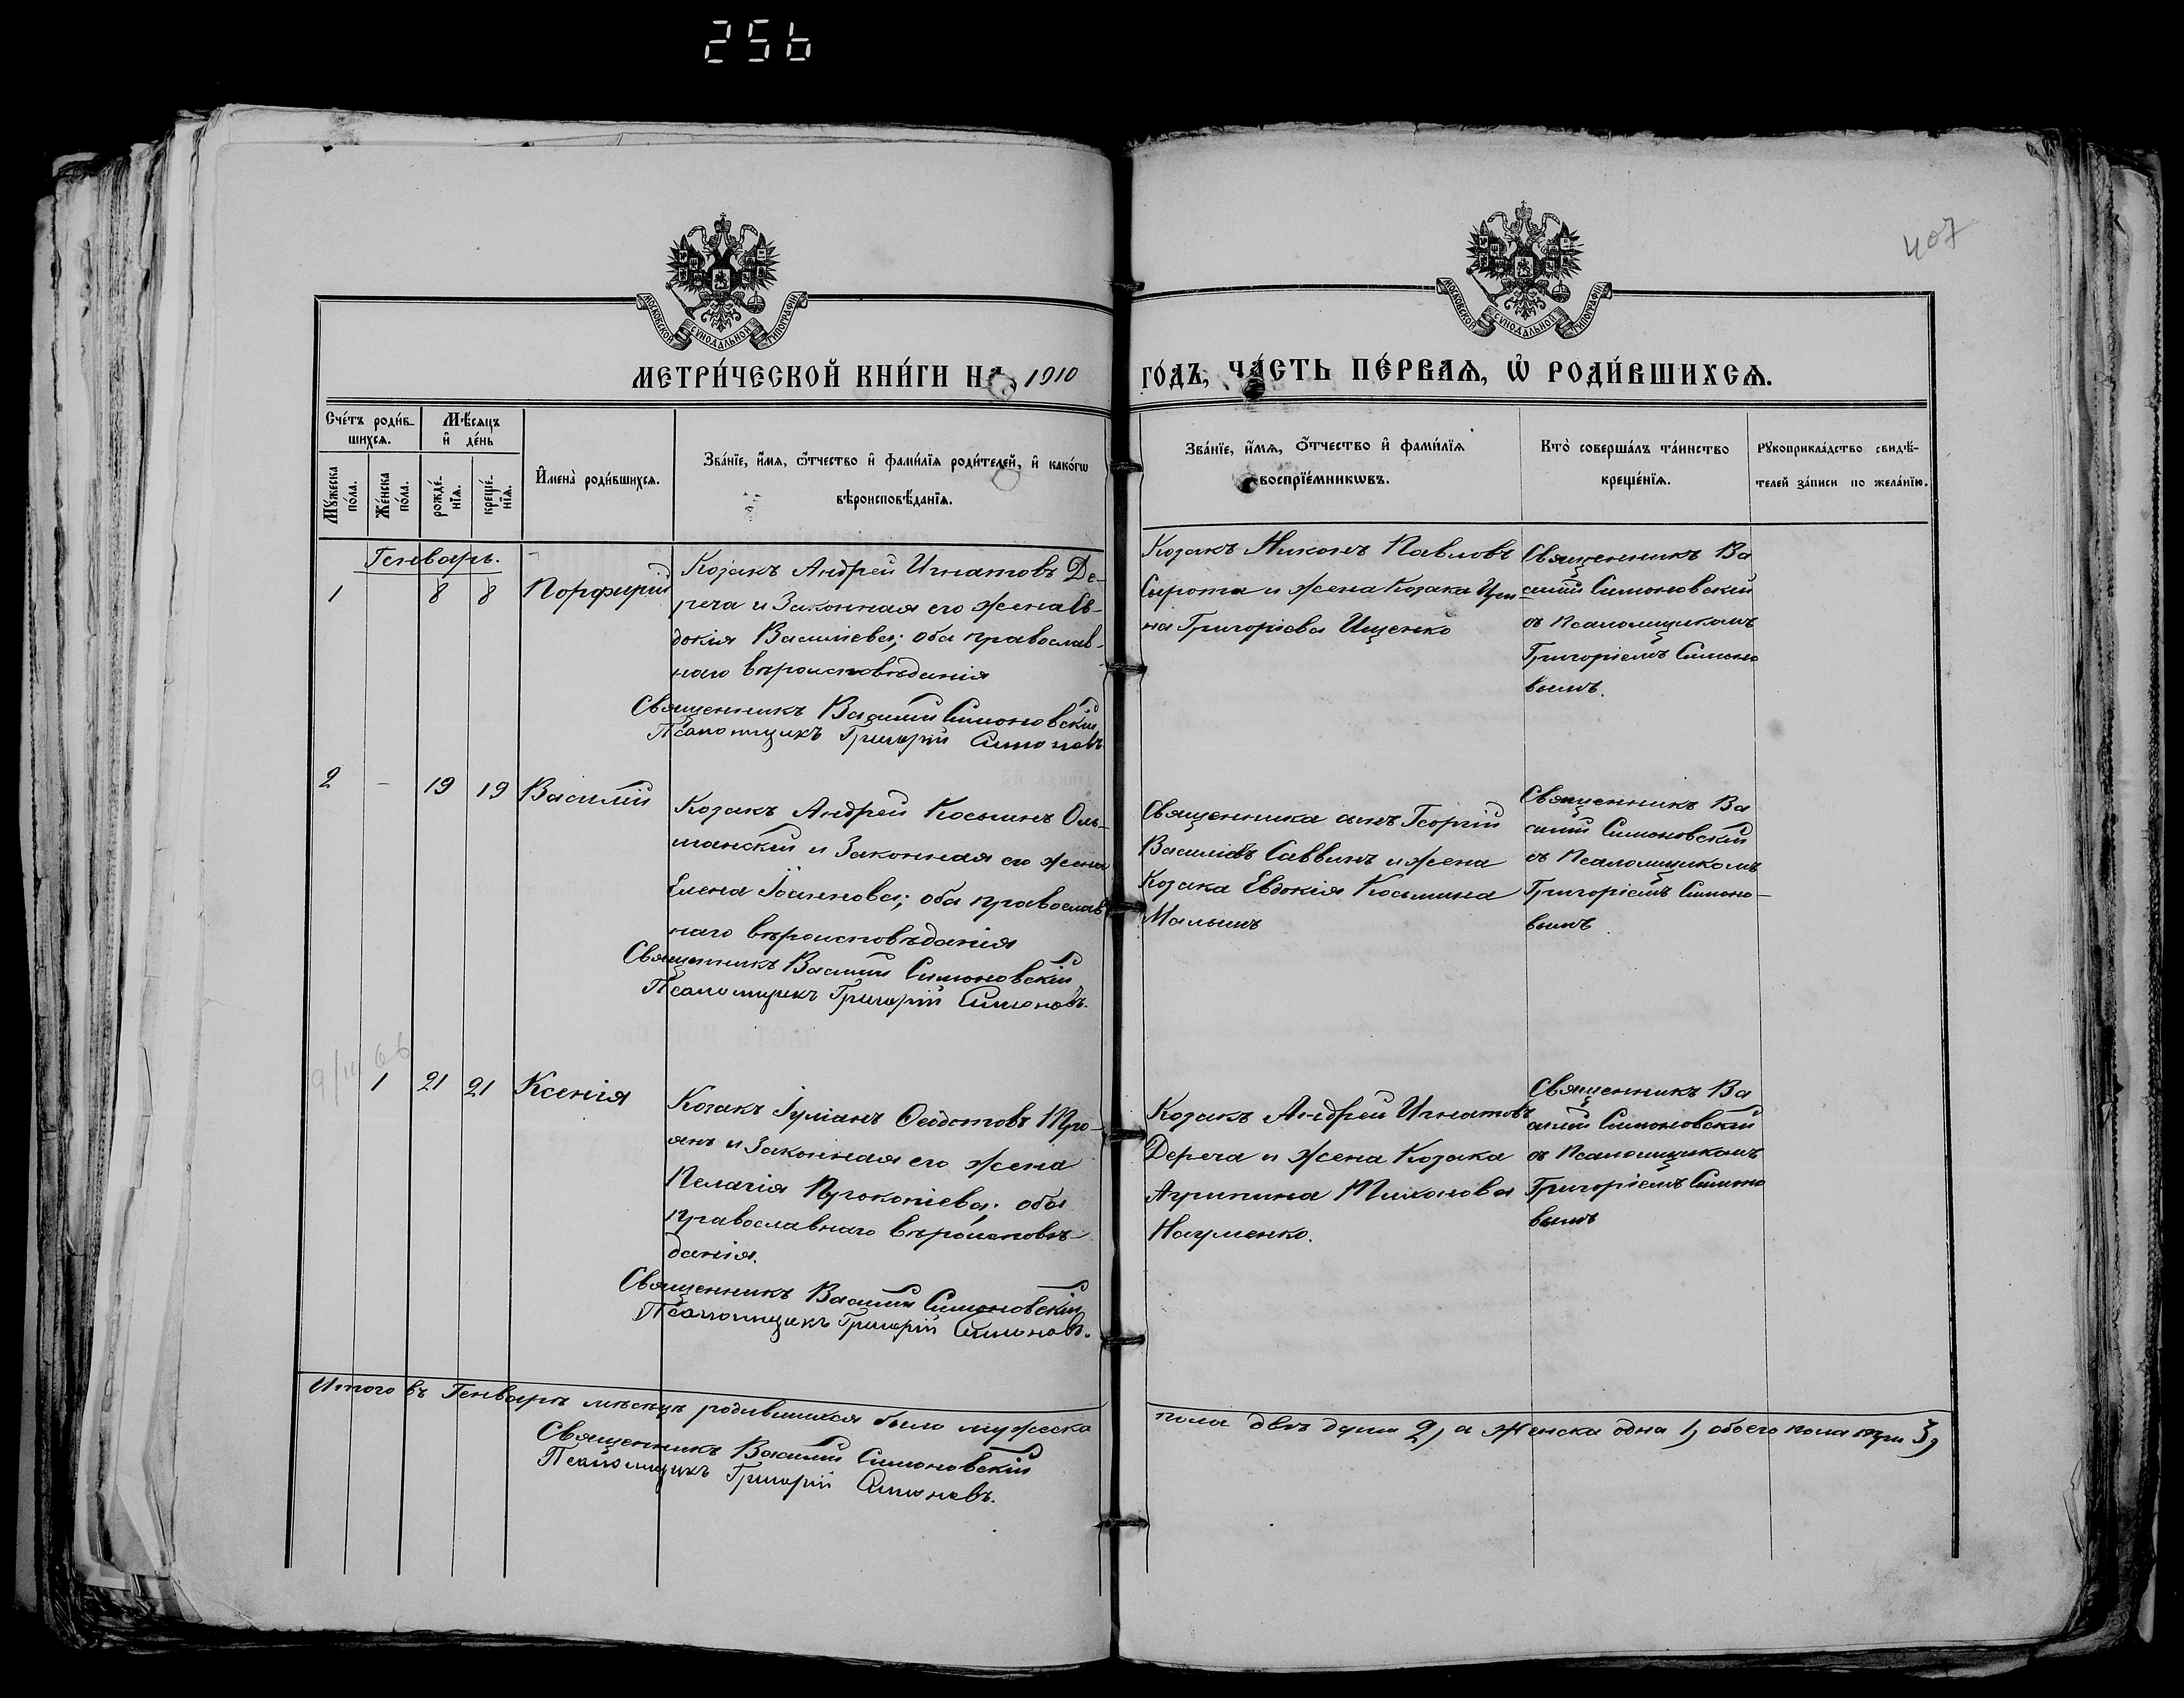 256
407
МОСКОВСКОЙ СѴНОДАЛЬНОЙ ТИПОГРАФІИ
МОСКОВСКОЙ СѴНОДАЛЬНОЙ ТИПОГРАФІИ
МЕТРИ́ЧЕСКОЙ КНИ́ГИ НА 1910 ГО́ДЪ, ЧА́СТЬ ПЕ́РВАѦ, Ѽ РОДИ́ВШИХСѦ.
Сче́тъ роди́в-
шихсѧ.
Мꙋ́жеска
по́ла.
Же́нска
по́ла.
Мѣ́сѧцъ
и҆ де́нь
рожде́-
нїѧ.
креще́-
нїѧ.
И҆мена̀ роди́вшихсѧ.
Зва́нїе, и҆́мѧ, ѻ҆́тчество и҆ фами́лїѧ роди́телей, и҆ како́гѡ
вѣроисповѣ́данїѧ.
Зва́нїе, и҆́мѧ, ѻ҆́тчество и҆ фами́лїѧ
воспрїе́мникѡвъ.
Кто̀ соверша́лъ та́инство
креще́нїѧ.
Рꙋкоприкла́дство свидѣ́-
телей за́писи по жела́нїю.
Генварь.
1 8 8 Порфирій
Козакъ Андрей Игнатовъ Де-
реча и Законная его жена Ев-
докія Васильева; оба православ-
наго вѣроисповѣданія
Священникъ Василій Симоновскій
Псаломщикъ Григорій Симоновъ
Козакъ Никонъ Павловъ
Сырота и жена Козака Ири-
на Григоріева Ищенко
Священникъ Ва
силій Симоновскій
съ Псаломщикомъ
Григоріемъ Симоно
вымъ.
2 - 19 19 Василій
Козакъ Андрей Косьминъ Оль-
шанскій и Законная его жена
Елена Іоаннова; оба православ
наго вѣроисповѣданія
Священникъ Василій Симоновскій
Псаломщикъ Григорій Симоновъ.
Священника сынъ Георгій
Васильевъ Саввинъ и жена
Козака Евдокія Косьмина
Малышъ
Священникъ Ва
силій Симоновскій
съ Псаломщикомъ
Григоріемъ Симоно-
вымъ
1 21 21 Ксенія
Козакъ Іуліанъ Ѳеодотовъ Тро-
янъ и Законная его жена
Пелагія Прокопіева; оба
православнаго вѣроисповѣ-
данія.
Священникъ Василій Симоновскій
Псаломщикъ Григорій Симоновъ.
Козакъ Андрей Игнатовъ
Дереча и жена Козака
Агрипина Тихонова
Науменко.
Священникъ Ва
силій Симоновскій
съ Псаломщикомъ
Григоріемъ Симоно
вымъ
Итого въ Генварѣ мѣсяцѣ родившихся было мужеска пола двѣ души 2, а женска одна 1, обоего пола три 3,
Священникъ Василій Симоновскій
Псаломщикъ Григорій Симоновъ.